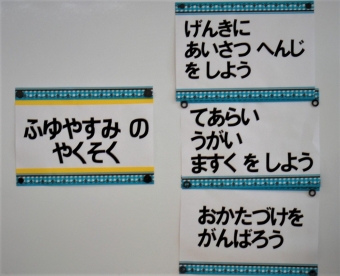 ふゆやすみ の
やくそく
げんきに
あいさつ へんじ
を しよう
てあらい
うがい
ますく を しよう
おかたづけを
がんばろう